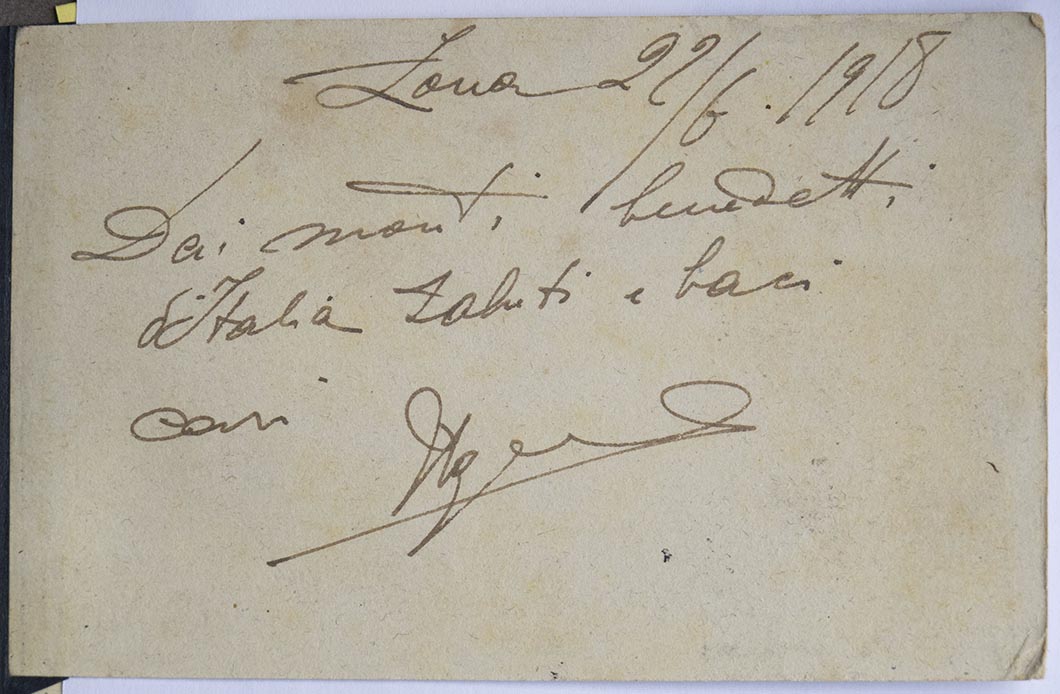 Zona 22/6. 1918
Dai monti benedetti
d'Italia saluti e baci
cari